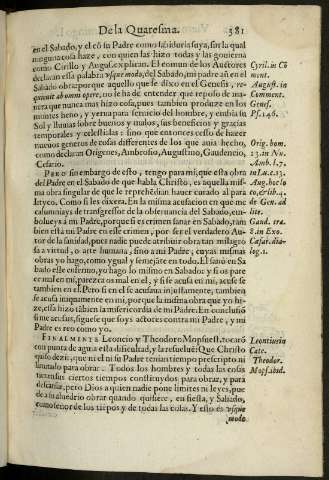 De la Quaresma. 581
en el Sabado, y el có su Padre como sabiduria suya, sin la qual
ninguna cosa haze, con quien las hizo todas y las gouierna
como Cirillo y August. explican. El comun de los Auctores
declaran esta palabra usque modo, del Sabado, mi padre aũ en el
Sabado obra: porque aquello que se dixo en el Genesis, re-
quieuit ab omni opere, no se ha de entender que reposò de ma-
nera que nunca mas hizo cosa, pues tambien produze en los
montes heno, y yerua para seruicio del hombre, y embia su
Sol y lluuias sobre buenos y malos, sus beneficios y gracias
temporales y celestiales: sino que entonces cesso de hazer
nueuos generos de cosas differentes de los que auia hecho,
como declaran Origenes, Ambrosio, Augustino, Gaudencio,
Cesario.
PERO sin embargo de esto, tengo para mi, que esta obra
del Padre en el Sabado de que habla Christo, es aquella mis-
ma obra singular de que le reprehẽdian hauer curado al para
litico. Como si les dixera. En la misma acusacion en que me
calumniays de transgressor de la obseruancia del Sabado, em-
boluey s a mi Padre, porque si es crimen sanar en Sabado, tam
bien està mi Padre en esse crimen, por ser el verdadero Au-
tor de la sanidad, pues nadie puede atribuir obra tan milagro
sa a virtud, o arte humana, sino a mi Padre, cuyas mismas
obras yo hago, como ygual y semejante en todo. El sanò en Sa
bado este enfermo, yo hago lo mismo en Sabado: y si os pare
ce mal en mi, parezca os mal en el, y si se acusa en mi, acuse se
tambien en el. Pero si en el se acusaua injustamente, tambien
se acusa iniquamente en mi, porque la misma obra que yo hi-
ze, essa hizo tãbien la misericordia de mi Padre. En conclusiõ
si me acusays, siguese que soys actores contra mi Padre, y mi
Padre es reo como yo.
FINALMENTE Leoncio y Theodoro Mopsuest. tocarõ
con punta de aguja esta dificultad, y la resuelué: Que Christo
quiso dezir, que ni el ni su Padre tenian tiempo prescripto ni
limitado para obrar. Todos los hombres y todas las cosas
tienen sus ciertos tiempos constituydos para obrar, y para
descansar, pero Dios a quien nadie pone limites ni leyes, pue
de a su aluedrio obrar quando quisiere, en fiesta, y Sabado,
como señor de los tiẽpos y de todas las cosas. Y esto es usque
modo
Cyril. in Cõ
ment.
August. in
Comment.
Genes.
Ps. 146.
Orig. hom.
23. in Nu.
Amb. l. 7.
in Luc. c. 13.
Aug. hoc lo
co, & lib. 4.
de Gen. ad
lite.
Gaud. tra.
8. in Exo.
Cesar. dia-
log. 1.
Leontius in
Cate.
Theodor.
Mopsabud.